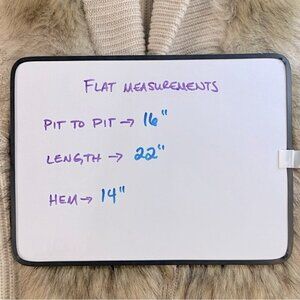 FLAT MEASUREMENTS
PIT TO PIT → 16"
LENGTH → 22"
HEM → 14"